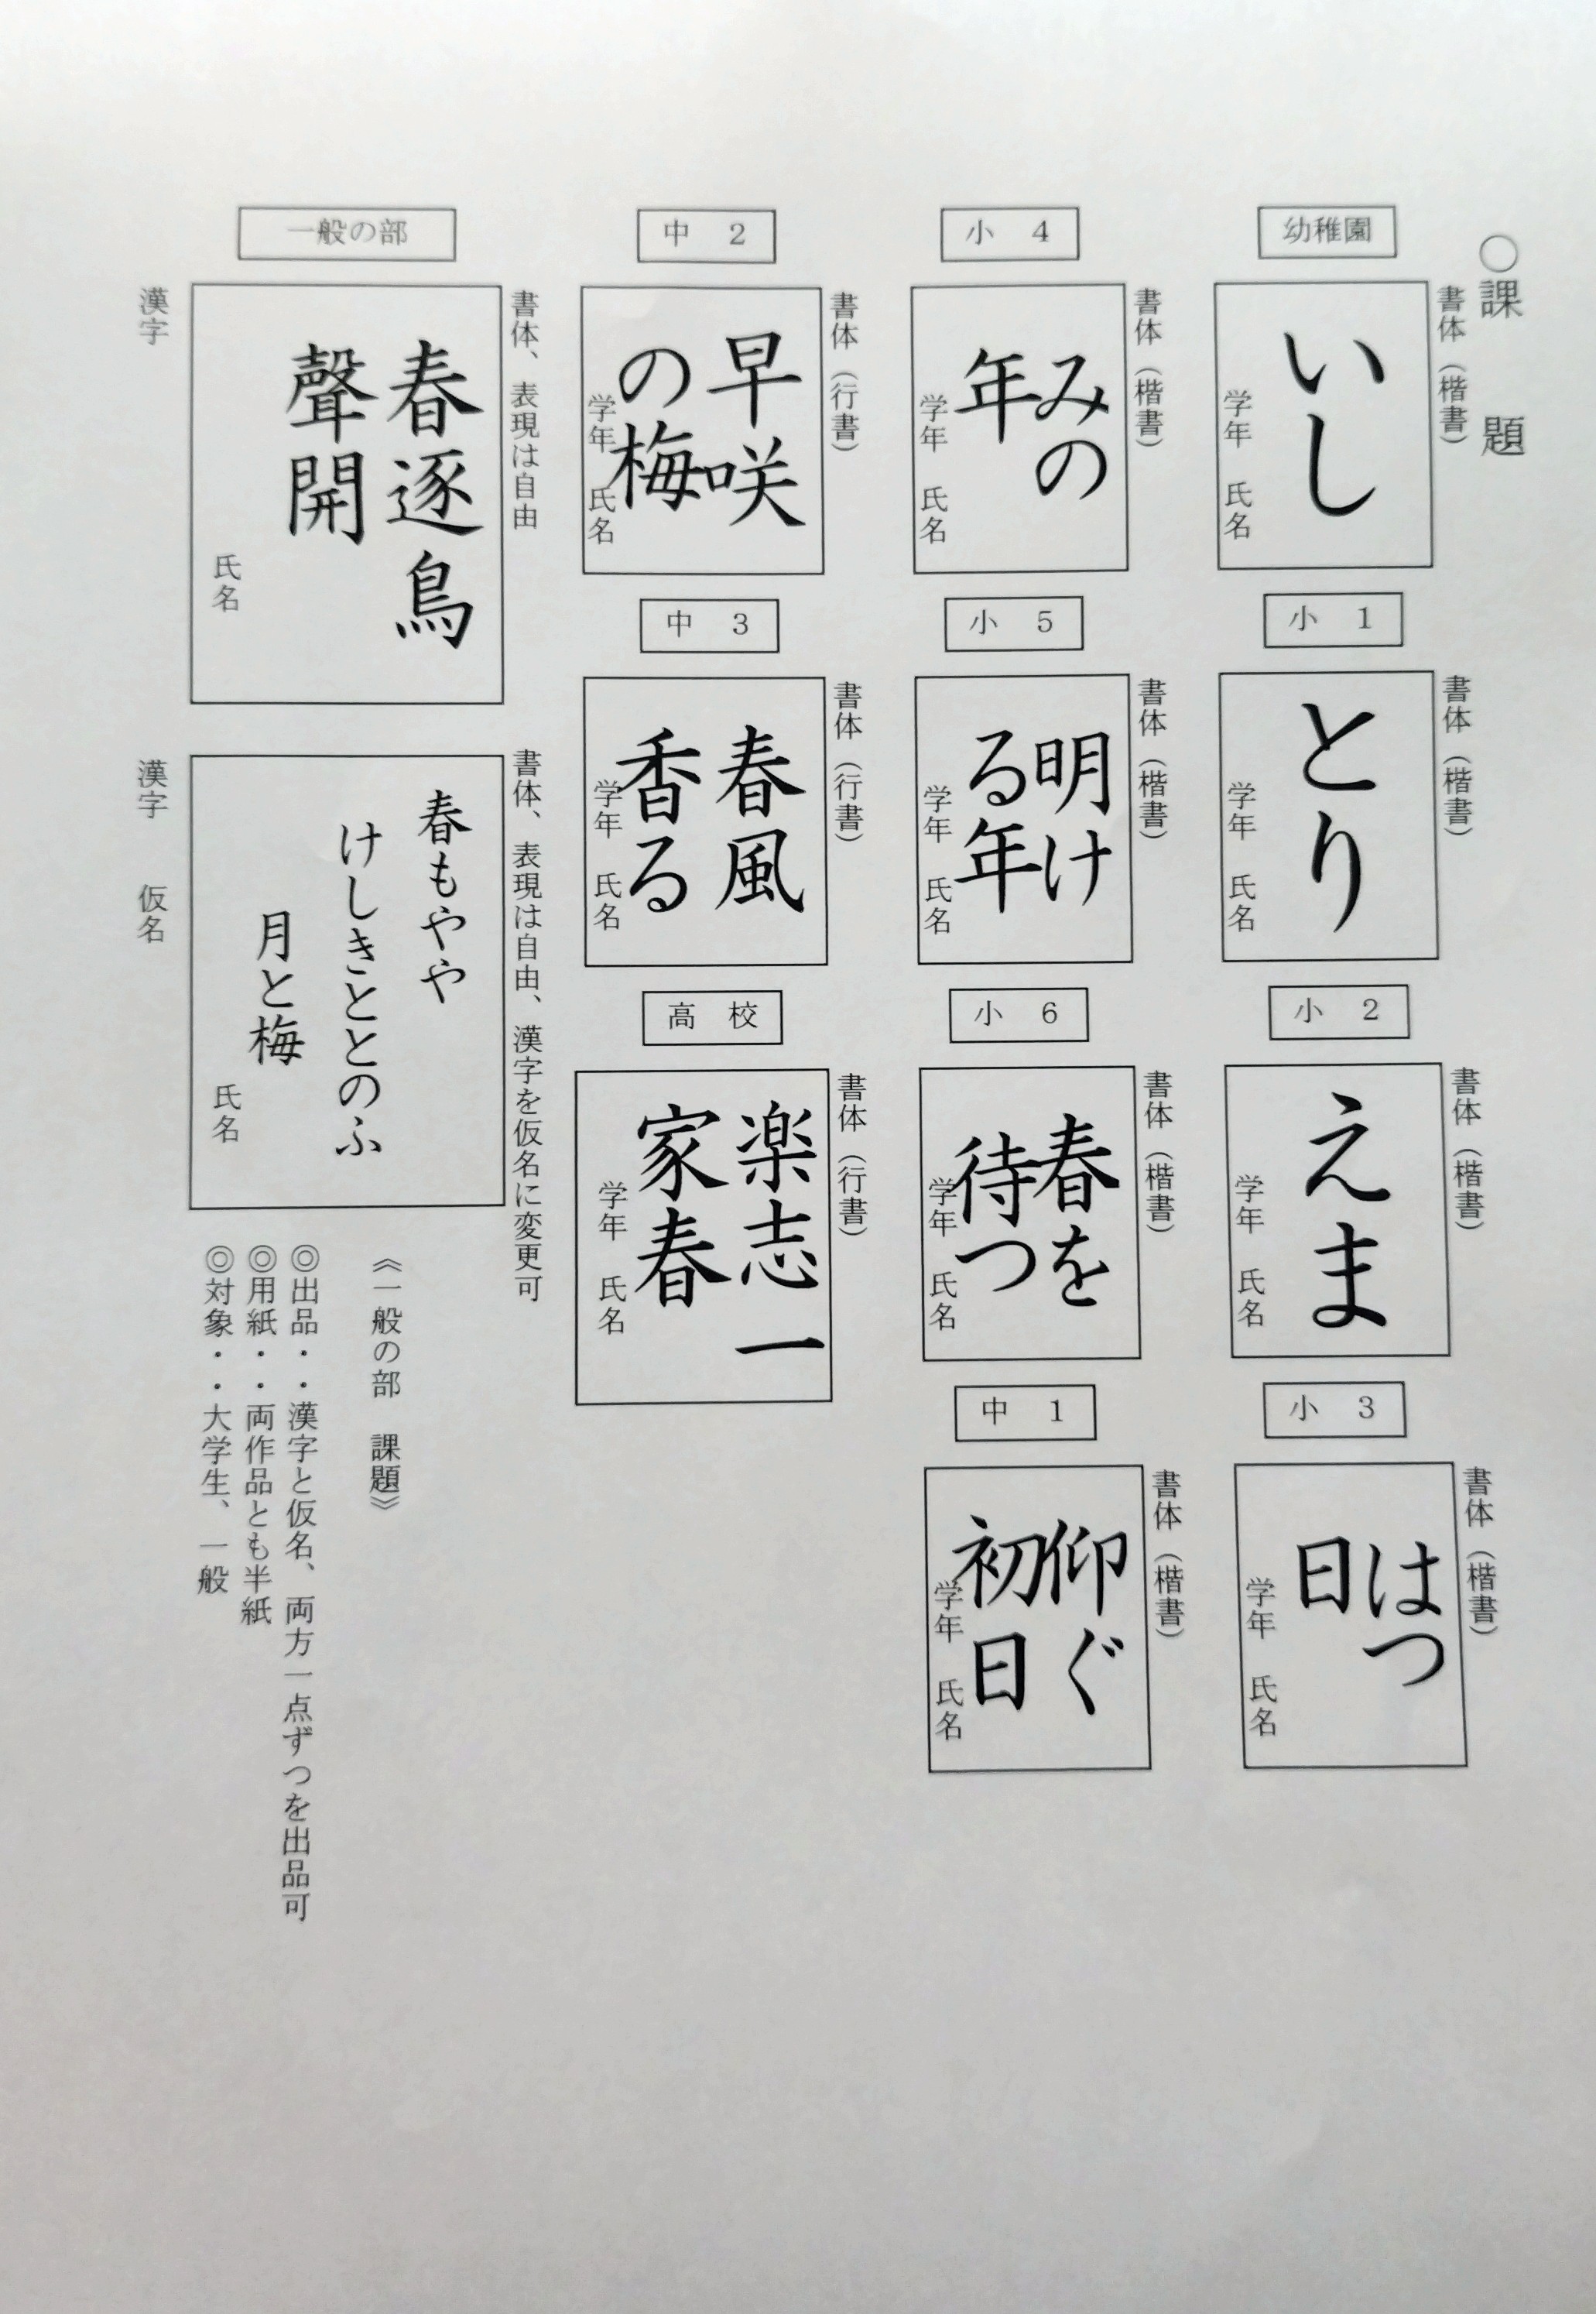 ○課　題
幼稚園
書体（楷書）
いし
学年　氏名
小　1
書体（楷書）
とり
学年　氏名
小　2
書体（楷書）
えま
学年　氏名
小　3
書体（楷書）
はつ
日
学年　氏名
小　4
書体（楷書）
みの
年
学年　氏名
小　5
書体（楷書）
明け
る年
学年　氏名
小　6
書体（楷書）
春を
待つ
学年　氏名
中　1
書体（楷書）
仰ぐ
初日
学年　氏名
中　2
書体（行書）
早咲
の梅
学年　氏名
中　3
書体（行書）
春風
香る
学年　氏名
高　校
書体（行書）
楽志一
家春
学年　氏名
一般の部
書体、表現は自由
春逐鳥
聲開
氏名
漢字
書体、表現は自由、漢字を仮名に変更可
春もやや
けしきととのふ
月と梅
氏名
漢字　仮名
《一般の部　課題》
◎出品・・漢字と仮名、両方一点ずつを出品可
◎用紙・・両作品とも半紙
◎対象・・大学生、一般